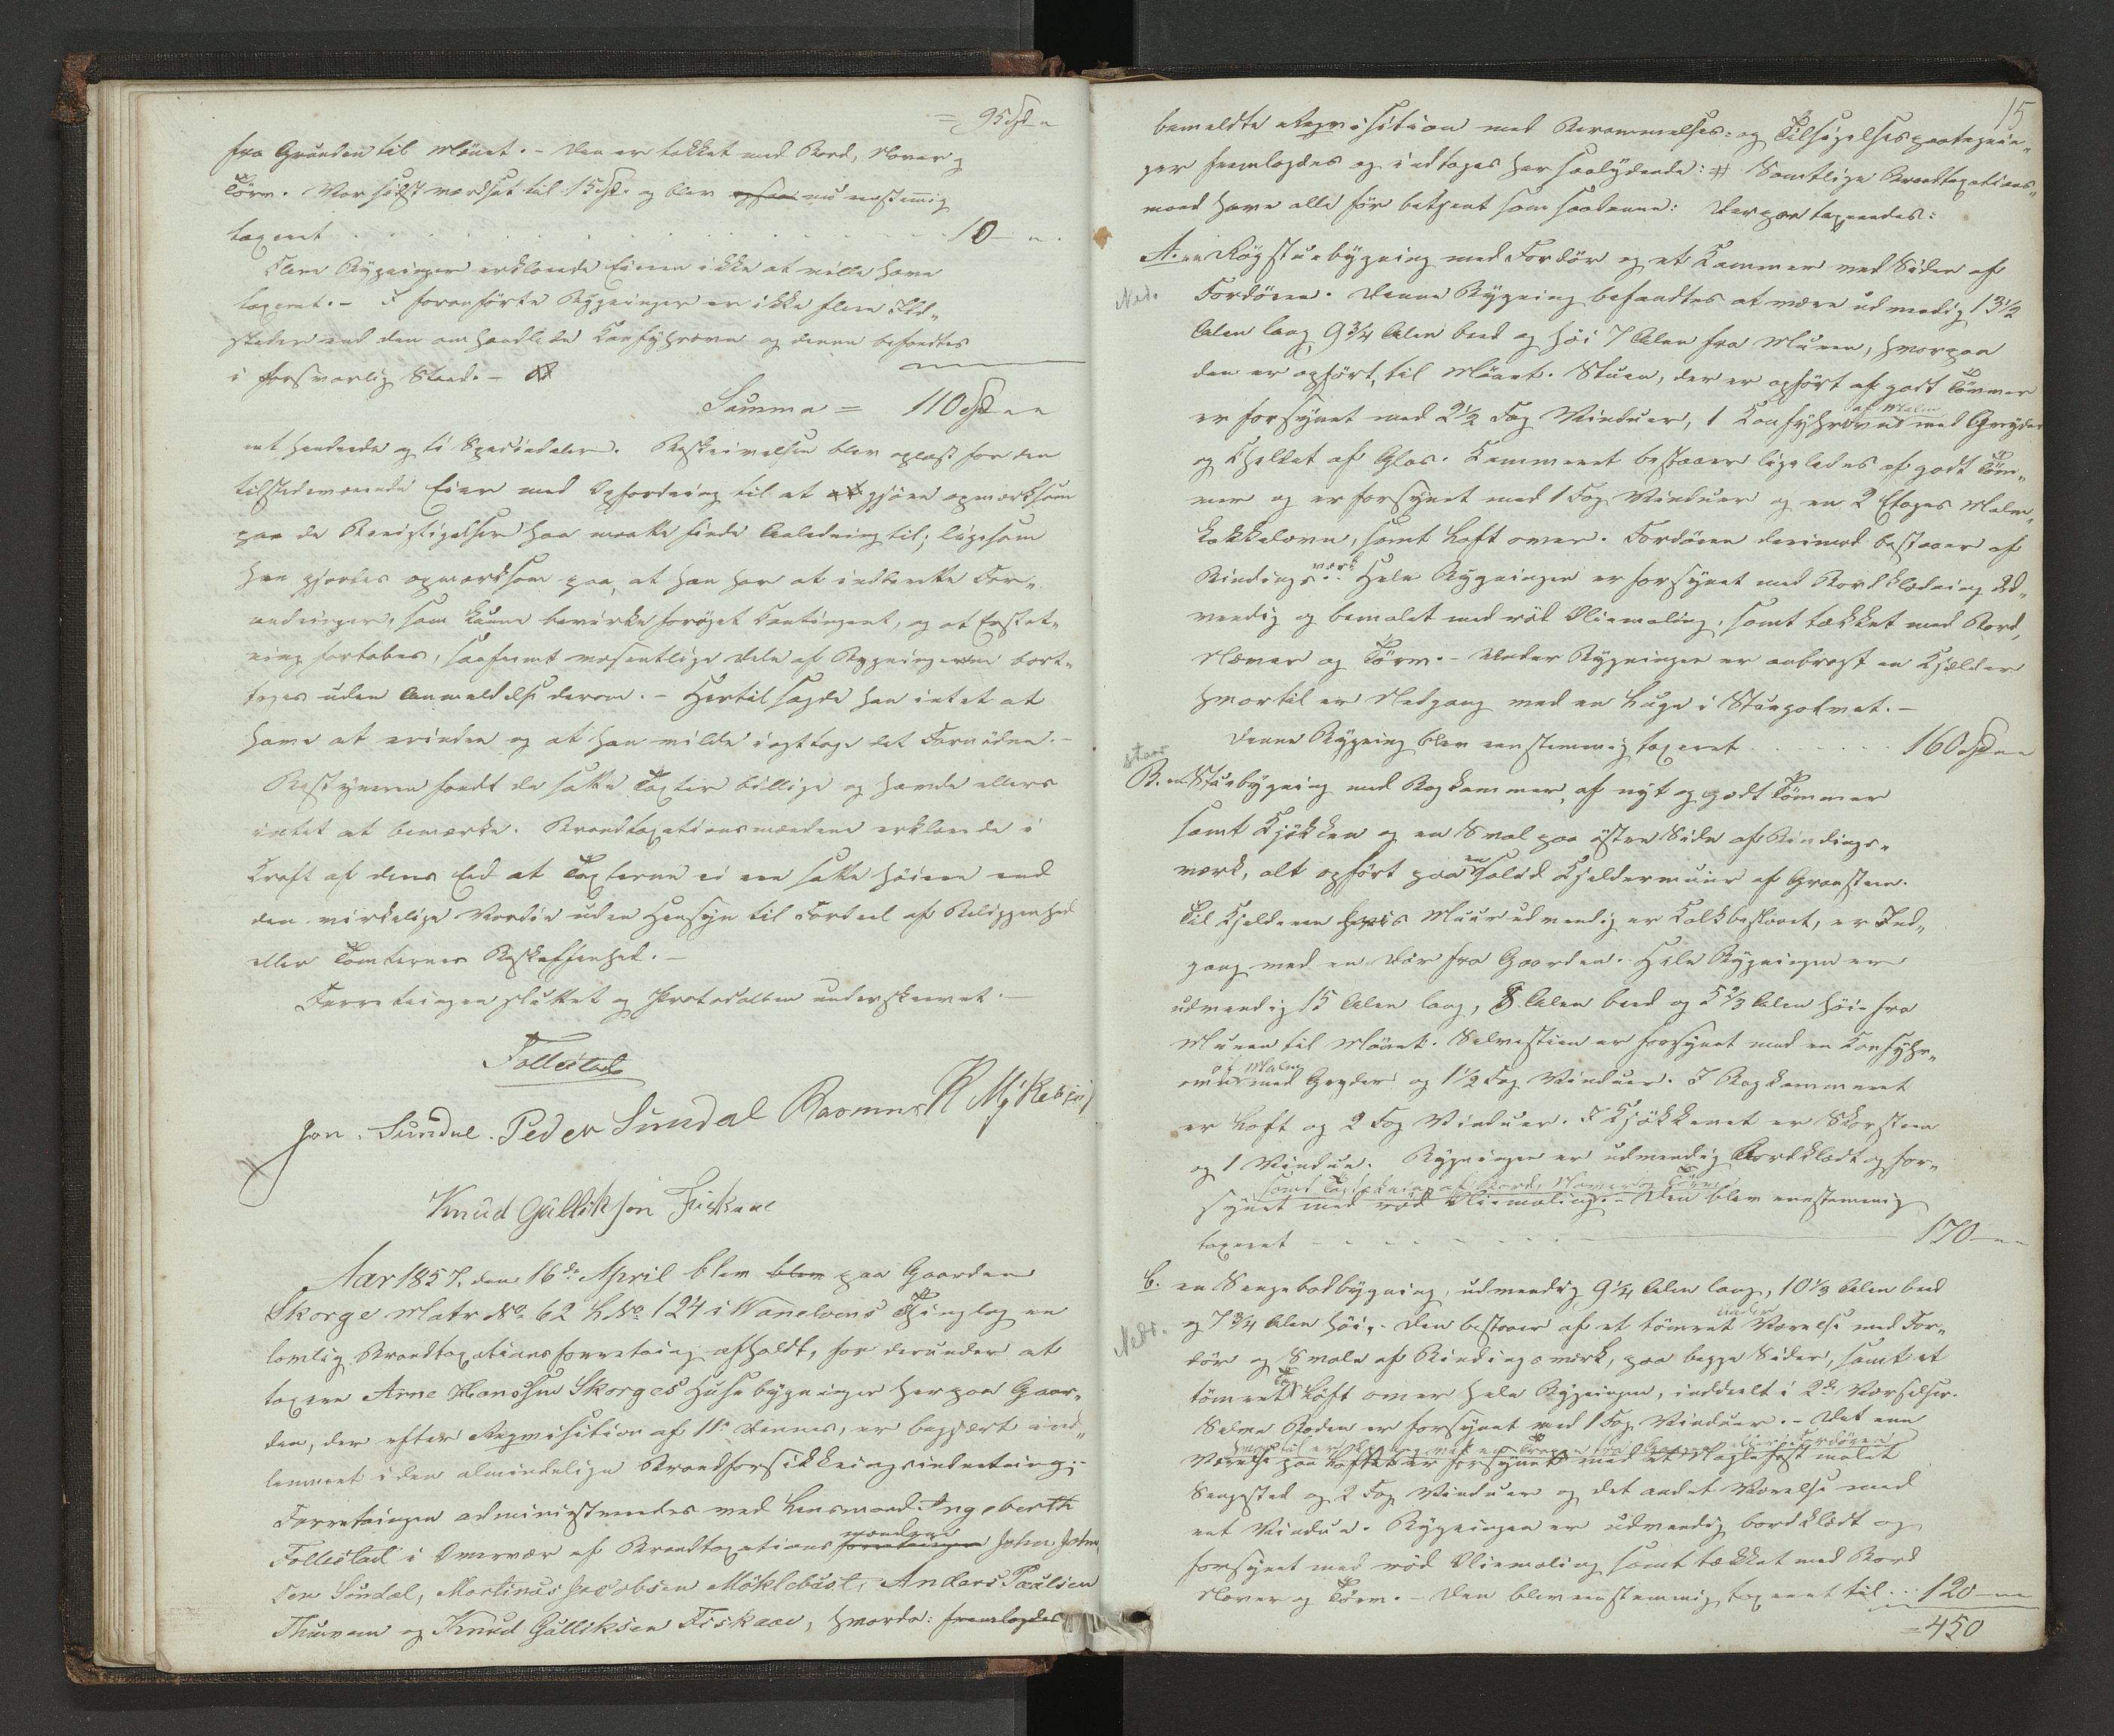 = 95 Spd "
fra Grunden til Mönet. – Den er tækket med Bord, Næver og
Törv. Var sidst værdsat til 15 Spd. og blev ogsaa nu eenstemmig
taxeret . . . . . . . . . . . . . . . 10 – ".
Flere Bygninger erklærede Eieren ikke at ville have
taxeret. – I foranförte Bygninger er ikke flere Ild„
steder end den omhandlede Komfyhrovn og denne befandtes
i forsvarlig Stand. –
Summa = 110 Spd " "
et hundrede og ti Speciedaler. Beskrivelsen blev oplæst for den
tilstedeværende Eier med Opfordring til at gjöre opmærksom
paa de Berigtigelser han maatte finde Anledning til; ligesom
han gjordes opmærksom paa, at han har at indberette For„
andringer, som kunne bevirke foröget Contingent, og at Erstat„
ning fortabes, saafremt væsentlige Dele af Bygningerne bort„
tages uden Anmeldelse derom. – Hertil sagde han intet at
have at erindre og at han vilde iagttage det Fornödne. –
Bestyreren fandt de satte Taxter billige og havde ellers
intet at bemærke. Brandtaxationsmændene erklærede i
Kraft af deres Eed at Taxterne ei ere satte höiere end
den virkelige Værdie uden Hensyn til Fordeel af Beliggenhed
eller Tomternes Beskaffenhed. –
Forretningen sluttet og Protocollen underskrevet. –
Follestad
Jon. Sundal. Peder Sundal Rasmus R Myklebust
Knud Gullikson Fiskaae
Aar 1857, den 16de April blev blev paa Gaarden
Skorge Matr No. 62 L No. 124 i Wanelvens Thinglag en
lovlig Brandtaxationsforretning afholdt, for derunder at
taxere Arne Hanssen Skorges Huusebygninger her paa Gaar„
den, der efter Reqvisition af 11te dennes, er begjært ind„
lemmet i den almindelige Brandforsikkringsindretning: –
Forretningen administreredes ved Lensmand Ingebreth
Follestad i Overvær af Brandtaxations forretningen mændene John John„
sen Sundal, Martinus Jacobsen Möklebust, Anders Paulsen
Thunem og Knud Gulliksen Fiskaae, hvorda: fremlagdes
15
bemeldte Reqvisition med Berammelses- og Tilsigelsespaategnin„
ger fremlagdes og indtages her saalydende: # Samtlige Brandtaxations„
mænd have alle för betjent som saadanne: Derpaa taxeredes:
A. en Rögstuebygning med Fordör og et Kammer ved Siden af
Ned.
Fordören. Denne Bygning befandtes at være udvendig 13½
Alen lang, 9¾ Alen bred og höi 7 Alen fra Muren, hvorpaa
den er opfört, til Mönet. Stuen, der er opfört af godt Tömmer
er forsynet med 2½ Fag Vinduer, 1 Komfyhrovn af Malm med Gryder
og Skellet af Glas. Kammeret bestaaer ligeledes af godt Töm„
mer og er forsynet med 1 Fag Vinduer og en 2 Etages Malm„
kakkelovn, samt Loft over. Fordören derimod bestaaer af
Bindingsværk. Hele Bygningen er forsynet med Bordklædning ud„
vendig og bemalet med röd Oliemaling, samt tækket med Bord,
Næver og Törv. – Under Bygningen er anbragt en Kjælder
hvortil er Nedgang med en Luge i Stuegolvet. –
Denne Bygning blev eenstemmig taxeret . . . . . . . 160 Spd " "
staar
B. en Stuebygning med Bagkammer, af nyt og godt Tömmer
samt Kjökken og en Sval paa östre Side af Bindings„
værk, alt opfört paa en solid Kjeldermuur af Graasteen.
Til Kjelderen hvis Muur udvendig er Kalkbeslaaet, er Ind„
gang med en Dör fra Gaarden. Hele Bygningen er
udvendig 15 Alen lang, 8 Alen bred og 5⅔ Alen höi fra
Muren til Mönet. Selvestuen er forsynet med en Komfyhr„
ovn af Malm med Gryder og 1½ Fag Vinduer. I Bagkammeret
er Loft og 2 Fag Vinduer. I Kjökkenet er Skorsteen
og 1 Vindue. Bygningen er udvendig Bordklædt og for„
samt Tagtækning af Bord, Næver og Törv
synet med röd Oliemaling. – Den blev eenstemmig
taxeret – – – – – – – – 170 – " "
C. en Sengebodbygning, udvendig 9¼ Alen lang, 10⅓ Alen bred
og 7¾ Alen höi. – Den bestaaer af et tömret Værelse under med For„
Nedr.
dör og Svale af Bindingsværk, paa begge Sider, samt et
tömret Loft over hele Bygningen, inddeelt i 2de Værelser.
Selve Boden er forsynet med 1 Fag Vinduer. – Det ene
hvortil er Opgang med en Trappe fra Svalen eller Fordören
Værelse paa Loftet er forsynet med et Naglefast malet
Sengested og 2 Fag Vinduer og det andet Værelse med
eet Vindue. Bygningen er udvendig bordklædt og
forsynet med röd Oliemaling samt tækket med Bord
Næver og Törv. – Den blev eenstemmig taxeret til . . . 120 – " "
= 450